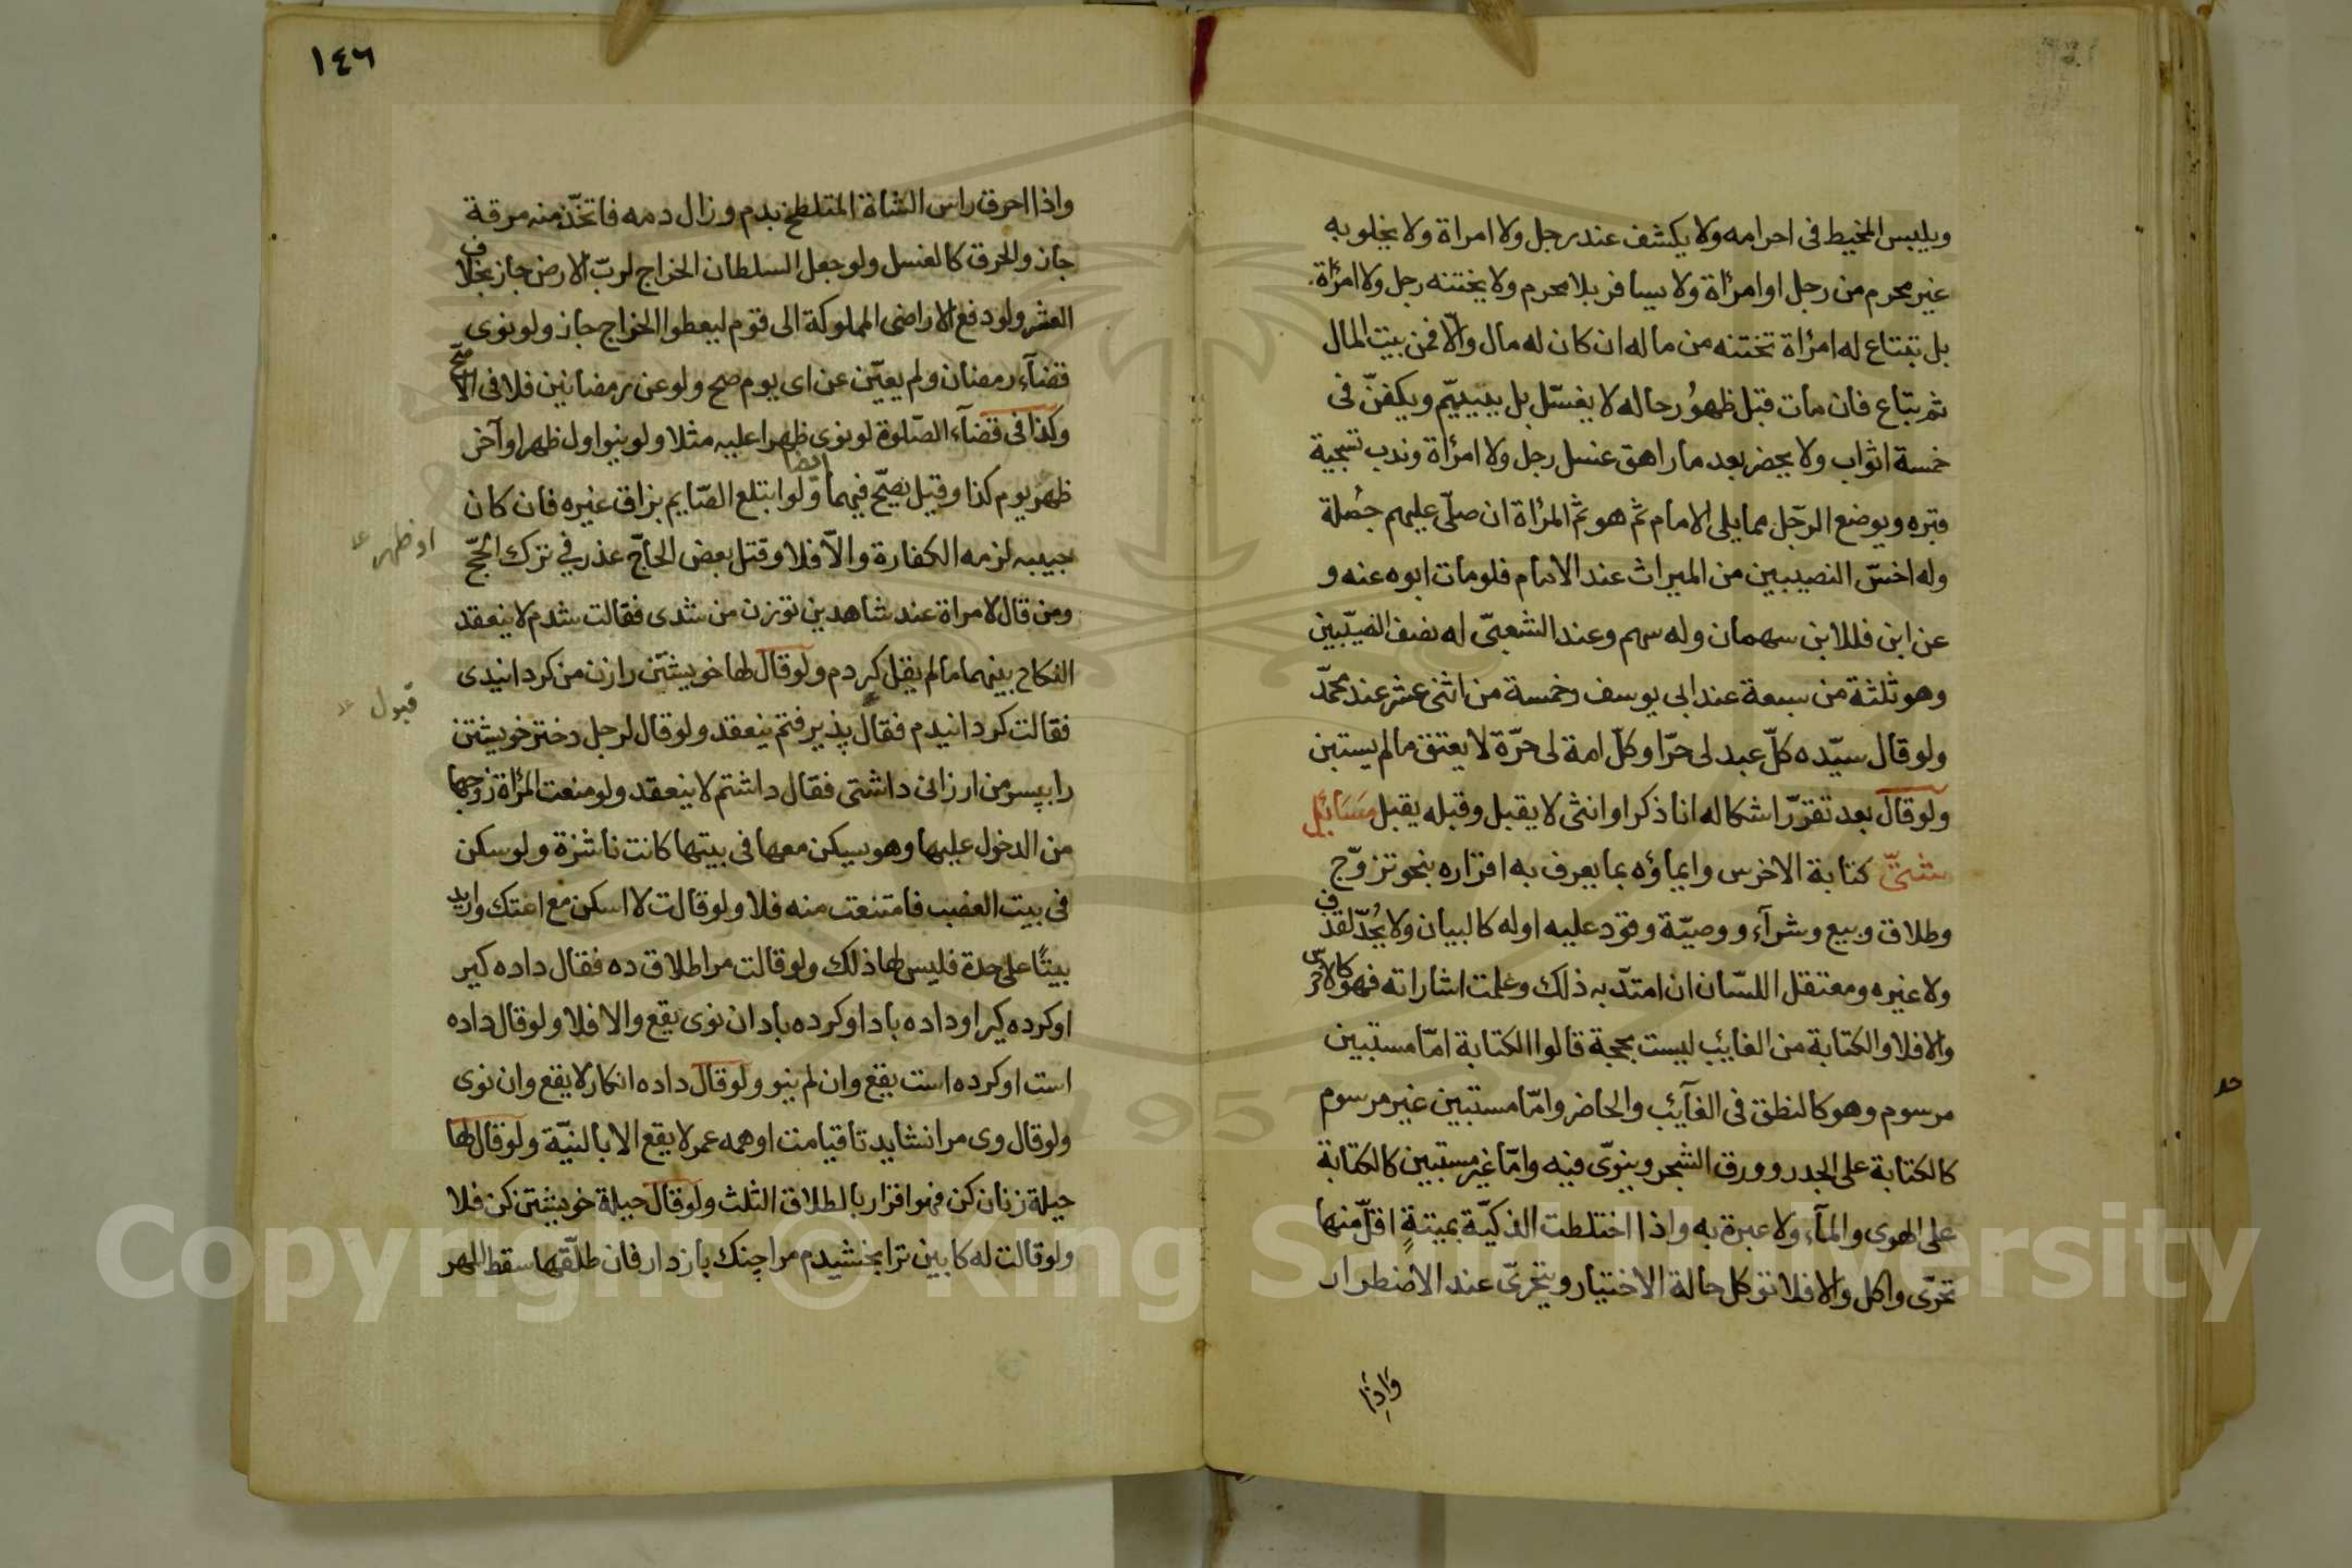 ويلبس المخيط فى احرامه ولا يكشف عند رجل ولا امراة ولا يخلو به
غير محرم من رجل او امرأة ولا يسافر بلا محرم ولا يختنه رجل ولا امرأة
بل تبتاع له امرأة تختنه من ماله ان كان له مال والّا فمن بيت المال
ثم تباع فان مات قبل ظهور حاله لا يغسّل بل ييمّم ويكفّن فى
خمسة اثواب ولا يحضر بعد ما راهق غسل رجل ولا امرأة وندب تسجية
قبره ويوضع الرّجل مما يلى الامام ثم هو ثم المرأة ان صلّى عليهم جُملة
وله اخسّ النصيبين من الميراث عند الامام فلو مات ابوه عنه و
عن ابن فللابن سهمان وله سهم وعند الشعبىّ له نصف النصيبين
وهو ثلثة من سبعة عند ابى يوسف وخمسة من اثنى عشر عند محمّد
ولو قال سيّده كلّ عبد لى حرّ او كلّ امة لى حرّة لا يعتق ما لم يستبن
ولو قال بعد تقرّر اشكاله انا ذكر او انثى لا يقبل وقبله يقبل مسَائِل
شتىّ كتابة الاخرس وايماؤه بما يعرف به اقراره بنحو تزوّج
وطلاق وبيع وشرآء ووصيّة وقود عليه او له كالبيان ولا يُحدّ لقذف
ولا غيره ومعتقل اللسّان ان امتدّ به ذلك وعلمت اشاراته فهو كالاخرس
والا فلا والكتابة من الغايب ليست بحجة قالوا الكتابة امّا مستبين
مرسوم وهو كالنطق فى الغآئب والحاضر وامّا مستبين غير مرسوم
كالكتابة على الجدر وورق الشجر وينوّى فيه وامّا غير مستبين كالكتابة
على الهوى والمآء ولا عبرة به واذا اختلطت الذكيّة بميتةٍ اقلّ منها
تحرّى واكل والا فلا تؤكل حالة الاختيار ويتحرىّ عند الاضطرار
وَاذِا
١٤٦
واذا احرق راس الشاة المتلطخ بدم وزال دمه فاتخّذ منه مرقة
جاز والحرق كالغسل ولو جعل السلطان الخراج لربّ الارض جاز بخلاف
العشر ولو دفع الاراضى المملوكة الى قوم ليعطوا الخراج جاز ولو نوى
قضآء رمضان ولم يعيّن عن اى يوم صح ولو عن رمضانين فلا فى الاصحّ
وكذا فى قضآء الصّلوة لو نوى ظهرا عليه مثلا ولو ينو اول ظهر او آخر
ظهر يوم كذا وقيل يصحّ فيهما ايضا ولو ابتلع الصّايم بزاق غيره فان كان
حبيبه لزمه الكفارة والّا فلا وقتل بعض الحاجّ عذر في ترك الحجّ
ومن قال لامراة عند شاهدين توزن من شدى فقالت شدم لا ينعقد
النكاح بينهما ما لم يقل كردم ولو قال لها خويشتن رازن من كردانيدى
فقالت كردانيدم فقال پذيرفتم ينعقد ولو قال لرجل دختر خويشتن
را بپسر من ارزانى داشتى فقال داشتم لا ينعقد ولو منعت المرأة زوجها
من الدخول عليها وهو يسكن معها فى بيتها كانت ناشزة ولو سكن
فى بيت الغصب فامتنعت منه فلا ولو قالت لا اسكن مع امتك واريد
بيتًا على حدة فليس لها ذلك ولو قالت مرا طلاق ده فقال داده كير
او كرده كير او داده باد او كرده باد ان نوى يقع والا فلا ولو قال داده
است او كرده است يقع وان لم ينو ولو قال داده انكار لا يقع وان نوى
ولو قال وى مرا نشايد تا قيامت او همه عمر لا يقع الا بالنيّة ولو قال لها
حيلة زنان كن فهو اقرار بالطلاق الثلث ولو قال حيلة خويشتن كن فلا
ولو قالت له كابين ترا بخشيدم مرا چنك باز دار فان طلّقها سقط المهر
او ظهر
قبول
Copyright © King Saud University
1957